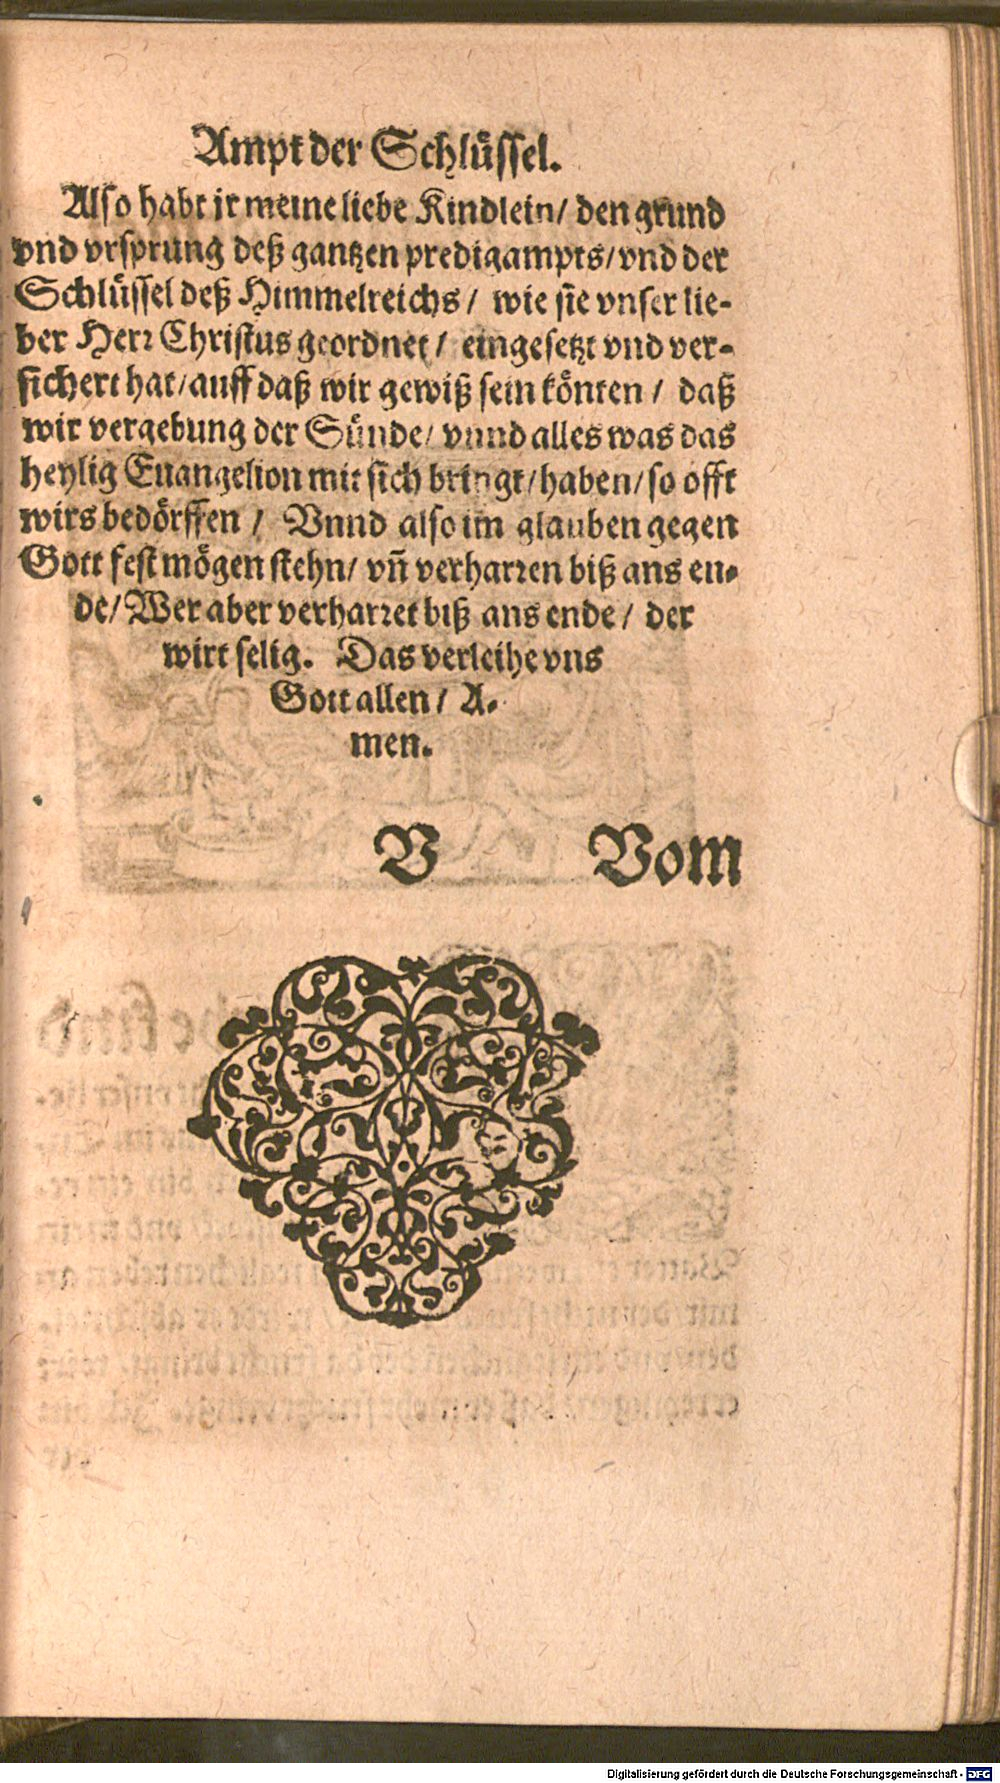 Ampt der Schlüssel.
Also habt jr meine liebe Kindlein/ den grund
vnd vrsprung deß gantzen predigampts/ vnd der
Schlüssel deß Himmelreichs/ wie sie vnser lie-
ber Herr Christus geordnet/ eingesetzt vnd ver-
sichert hat/ auff daß wir gewiß sein könten/ daß
wir vergebung der Sünde/ vnnd alles was das
heylig Euangelion mit sich bringt/ haben/ so offt
wirs bedörffen/ Vnnd also im glauben gegen
Gott fest mögen stehn/ vñ verharren biß ans en-
de/ Wer aber verharret biß ans ende/ der
wirt selig. Das verleihe vns
Gott allen/ A-
men.
V Vom
Digitalisierung gefördert durch die Deutsche Forschungsgemeinschaft - DFG